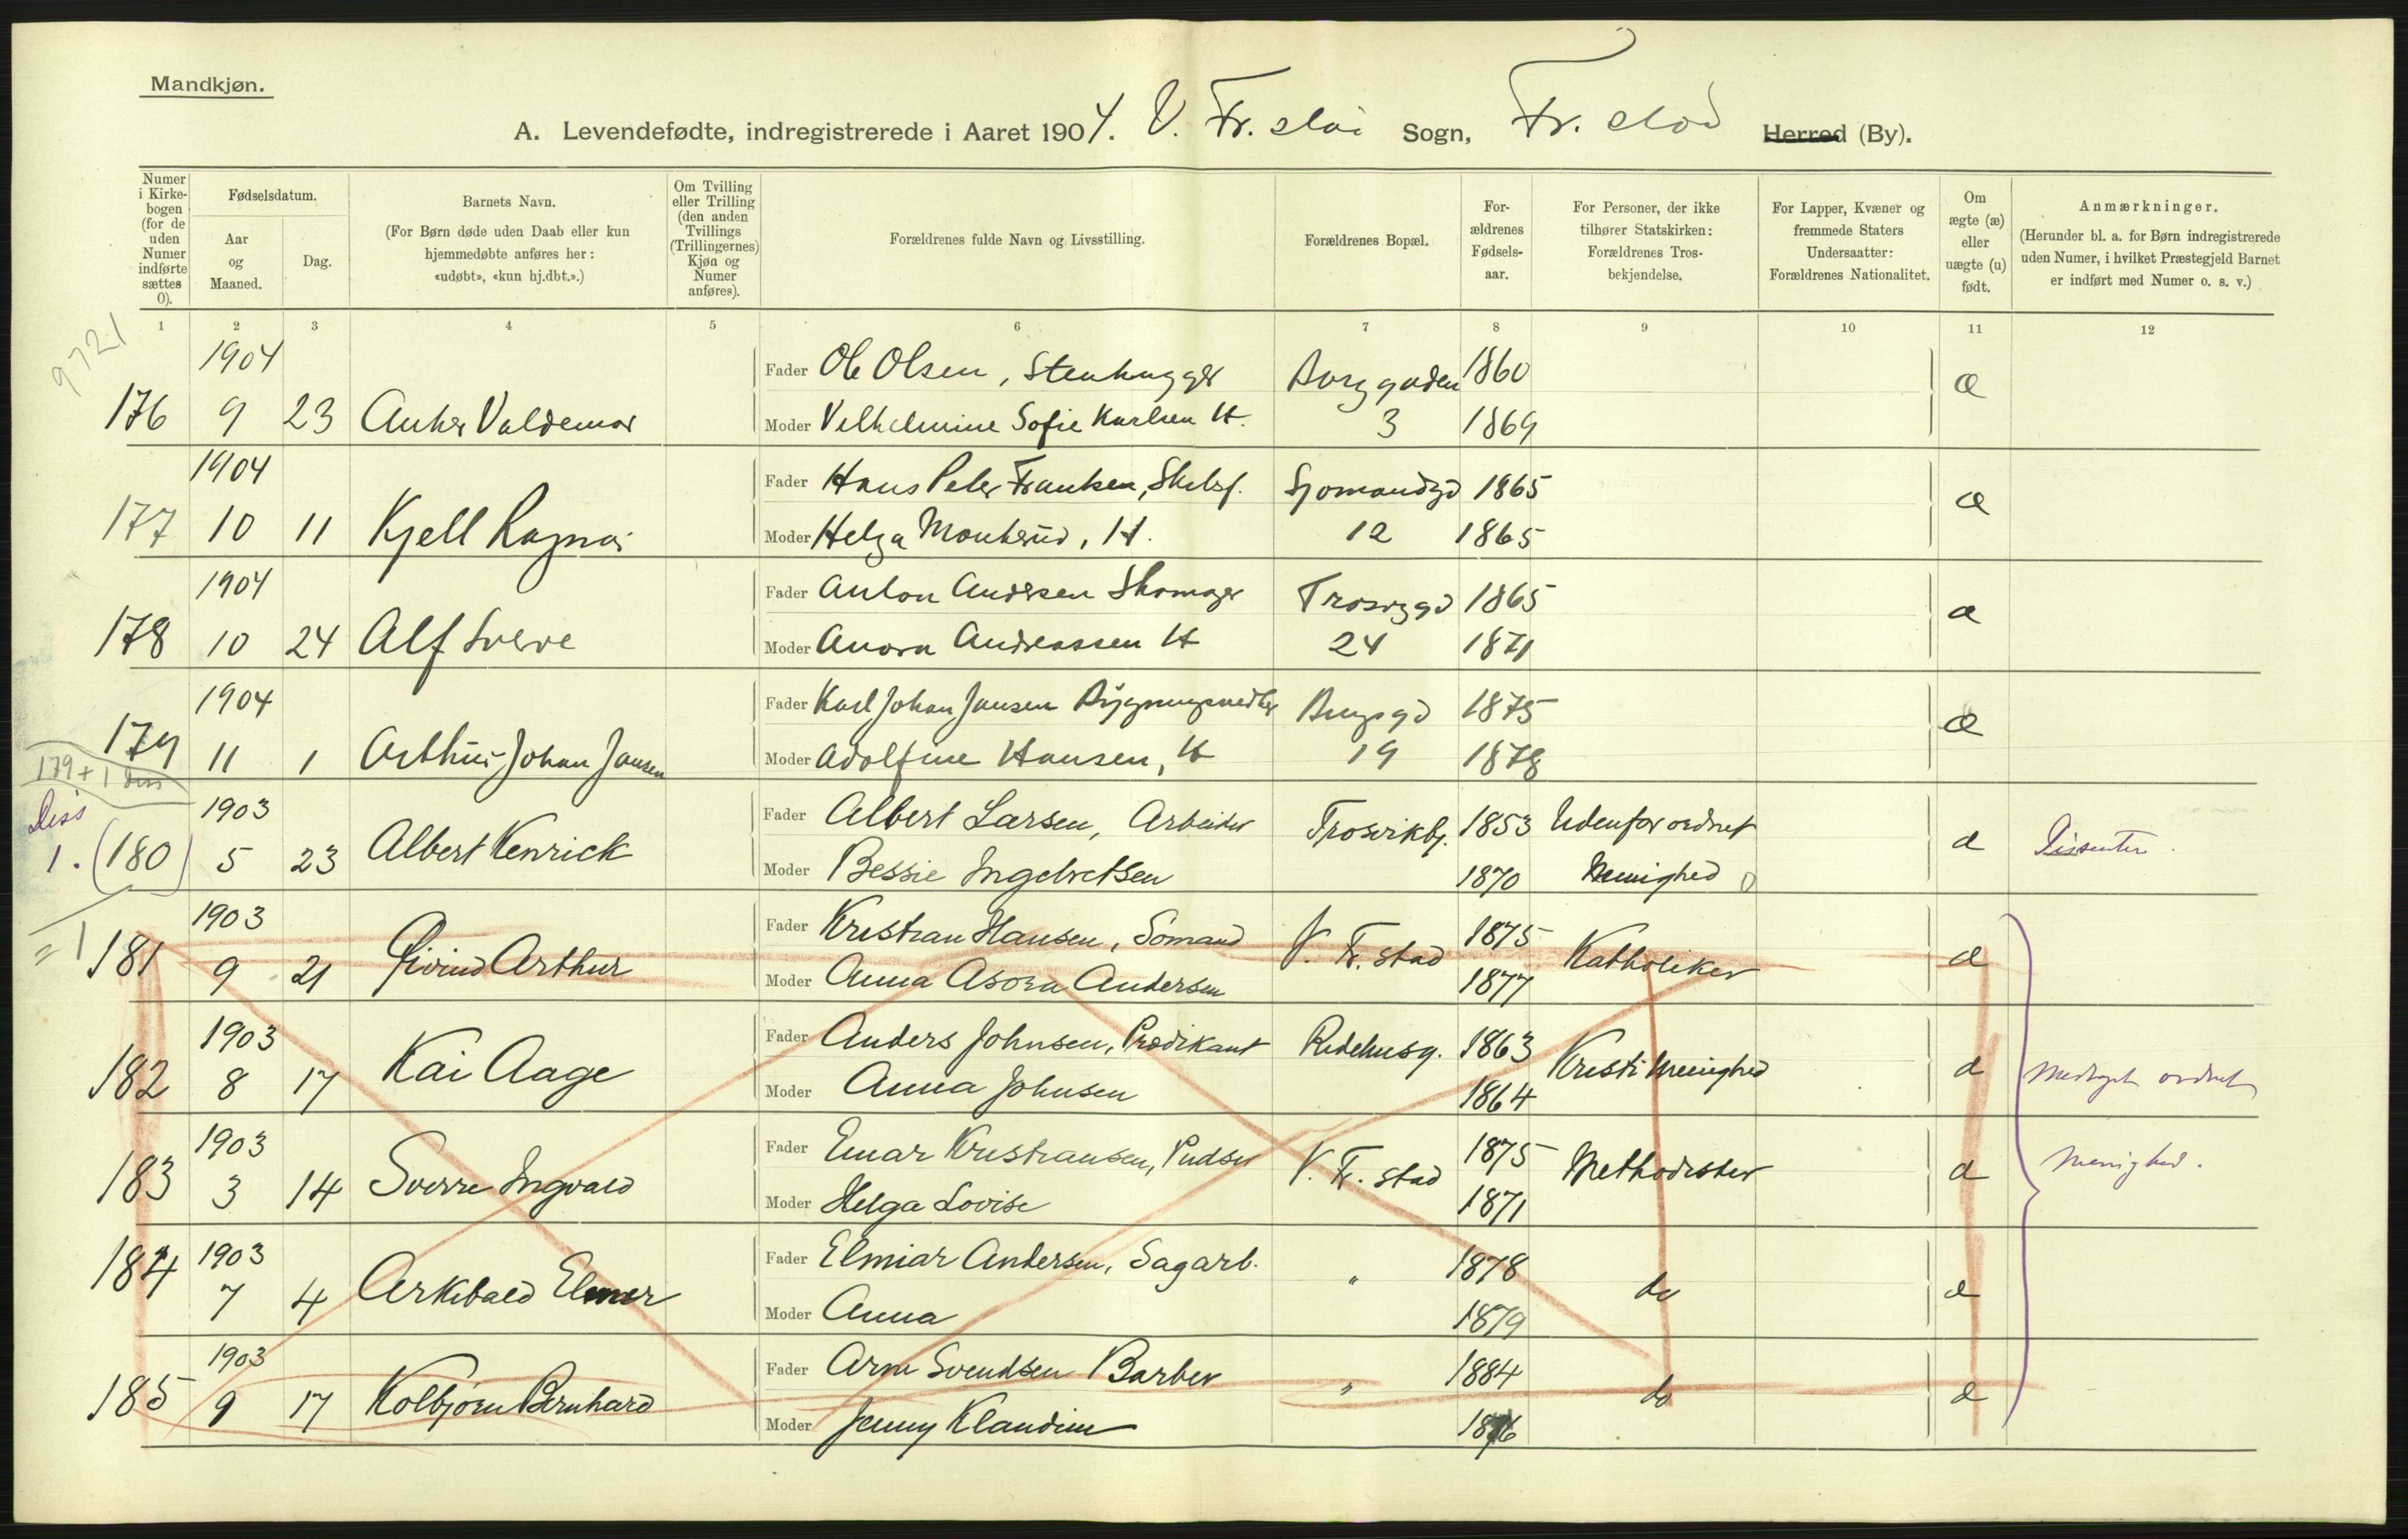 Mandkjøn.
A. Levendefødte, indregistrerede i Aaret 1904. V. Fr. stad Sogn, Fr. stad Herred (By).
Numer i Kirke-bogen (for de uden Numer indførte sættes 0).
Fødselsdatum.
Aar og Maaned.
Dag.
Barnets Navn.
(For Børn døde uden Daab eller kun hjemmedøbte anføres her: «udøbt», «kun hj.dbt.».)
Om Tvilling eller Trilling (den anden Tvillings (Trillingernes) Kjøn og Numer anføres).
Forældrenes fulde Navn og Livsstilling.
Forældrenes Bopæl.
For-ældrenes Fødsels-aar.
For Personer, der ikke tilhører Statskirken: Forældrenes Tros-bekjendelse.
For Lapper, Kvæner og fremmede Staters Undersaatter: Forældrenes Nationalitet.
Om ægte (æ) eller uægte (u) født.
Anmærkninger.
(Herunder bl. a. for Børn indregistrerede uden Numer, i hvilket Præstegjeld Barnet er indført med Numer o. s. v.)
1 2 3 4 5 6 7 8 9 10 11 12
9721
1904
Fader Ole Olsen, Stenhugger 1860 æ
176 9 23 Anker Valdemar
Moder Vilhelmine Sofie Karlsen H. 3 1869
1904
Fader Hans Peter Frantsen, Skibsf. Sjomandsgd 1865 æ
177 10 11 Kjell Ragnar
Moder Helga H. 12 1865
1904
Fader Anton Andersen Skomager 1865 æ
178 10 24 Alf Sverre
Moder Anora Andreassen H 24 1871
1904
Fader Karl Johan Jansen 1875 æ
179 11 1 Arthur Johan Jansen
Moder Adolfine Hansen, H 19 1878
179 + 1 diss
Diss
1903
Fader Albert Larsen, Arbeider Trosvikbg. 1853 Udenfor ordnet æ Dissenter.
1. (180) 5 23 Albert Kenrick
Moder Bessie Ingebretsen 1870 Menighed
= 1
1903
Fader Kristian Hansen, Sømand V. Fr. stad 1875 Katholiker æ
181 9 21 Øivind Arthur
Moder Anna Asora Andersen 1877
1903
Fader Anders Johnsen, Prædikant Ridehusg. 1863 Kristi Menighed æ
182 8 17 Kai Aage ordnet
Moder Anna Johnsen 1864
1903
Fader Einar Kristiansen, Pudser V. Fr. stad 1875 Methodister æ Menighed.
183 3 14 Sverre Ingvald
Moder Helga Lovise 1871
1903
Fader Elmiar Andersen, Sagarb. " 1878 do æ
184 7 4 Arkibald Elmer
Moder Anna 1879
1903
Fader Arne Svendsen Barber " 1884 do æ
185 9 17 Kolbjørn Bernhard
Moder Jenny Klaudine